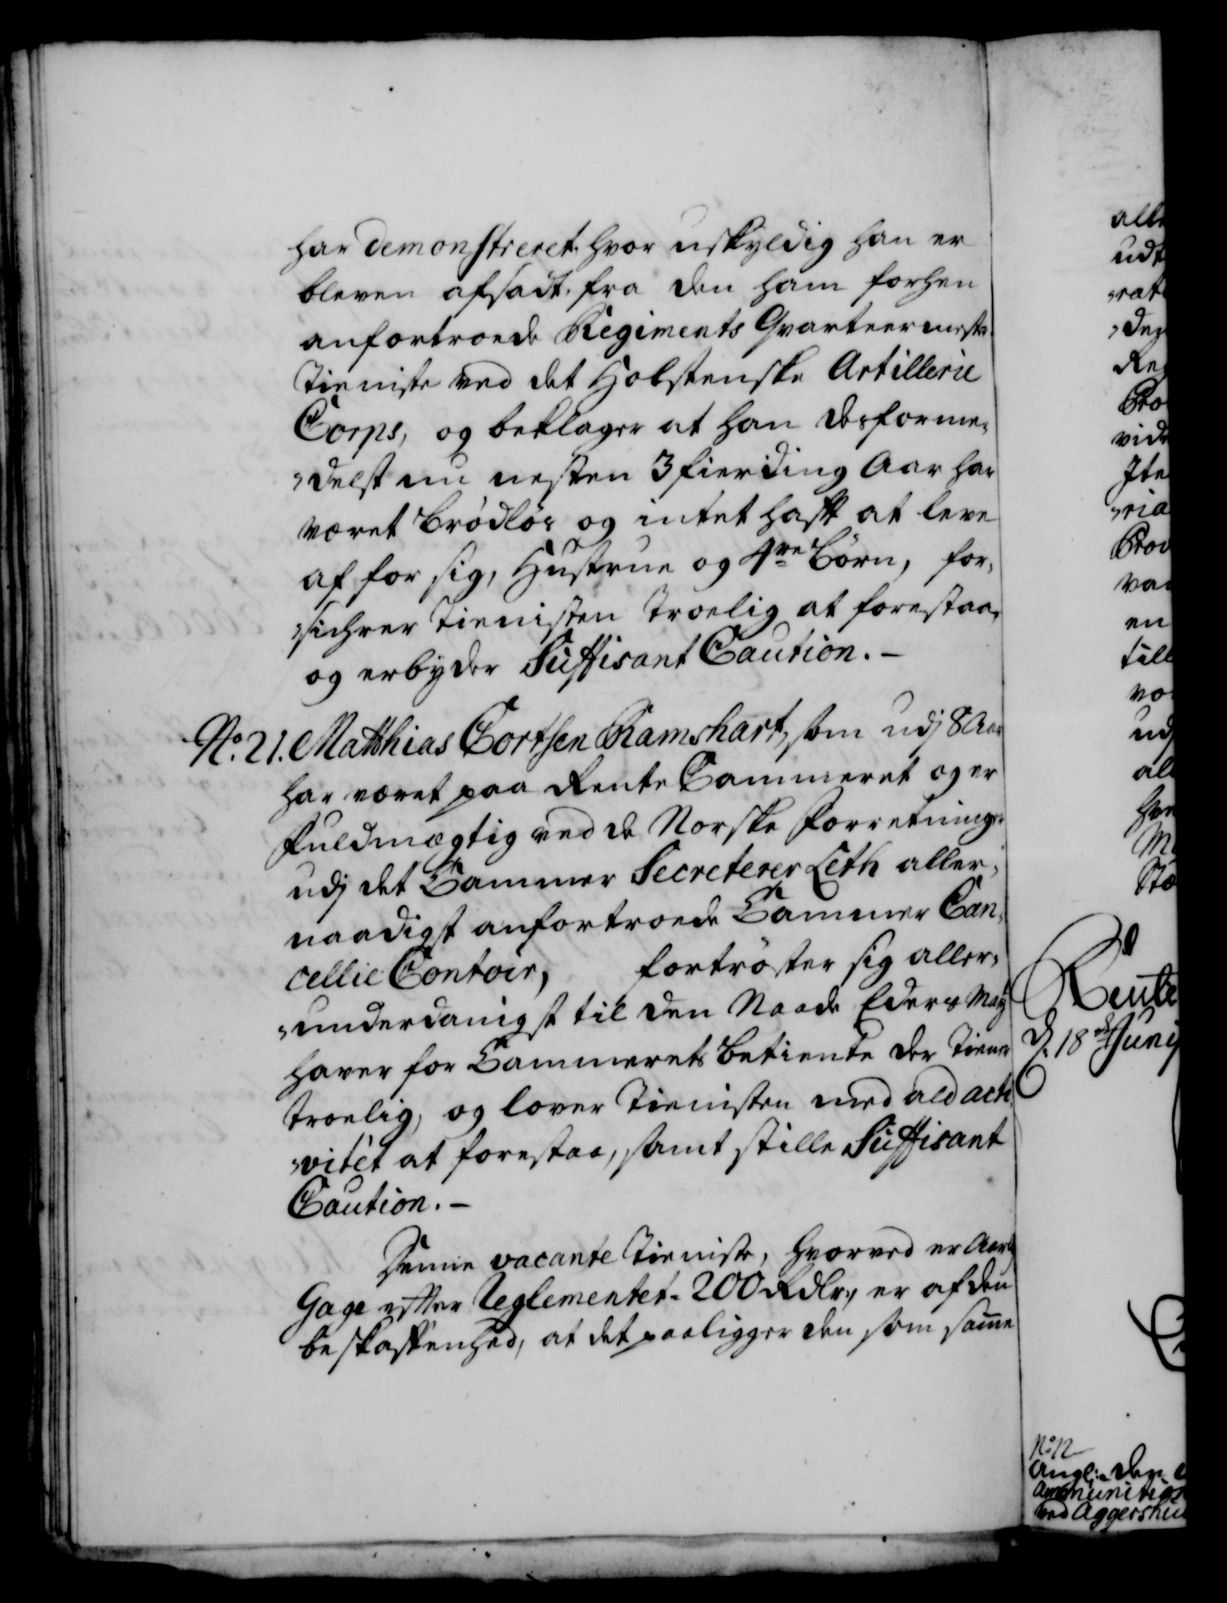 har demonstreret, hvor uskyldig han er
bleven afsadt, fra den ham forhen
anfortroede Regiments Qvarteermester
Tieniste ved det Holstenske Artillerie
Corps, og beklager at han desforme,
,delst nu nesten 3 fierding Aar har
været brødløs og intet hafft at leve
af for sig, Hustrue og 4re Børn, for,
,sichrer Tienisten troelig at forestaae
og erbyder Suffisant Caution. –
No. 21. Matthias Cortsen Ramshart, som udj 8 Aar
har været paa Rente Cammeret og er
fuldmægtig ved de Norske Forretninger
udj det Cammer Secreterer Leth aller,
naadigst anfortroede Cammer Can,
cellie Contoir, fortrøster sig aller,
,underdanigst til den Naade Eders May
haver for Cammerets betiente der tiener
troelig, og lover Tienisten med ald acti,
,vitet at forestaa, samt stille Suffisant
Caution. –
Denne vacante Tieniste, hvorved er Aarl
Gage efter Reglementet 200 Rdlr, er af den
beskaffenhed, at det paaligger den som samme
alle
udt
,rat
,deg
Reg
Pro
vide
Ite
,ria
Prov
va
en
till
vo
udj
all
hve
M
Stæ
Rente
D. 18 Junij
No 12
Angl: den
Ammunition
ved Aggershuu